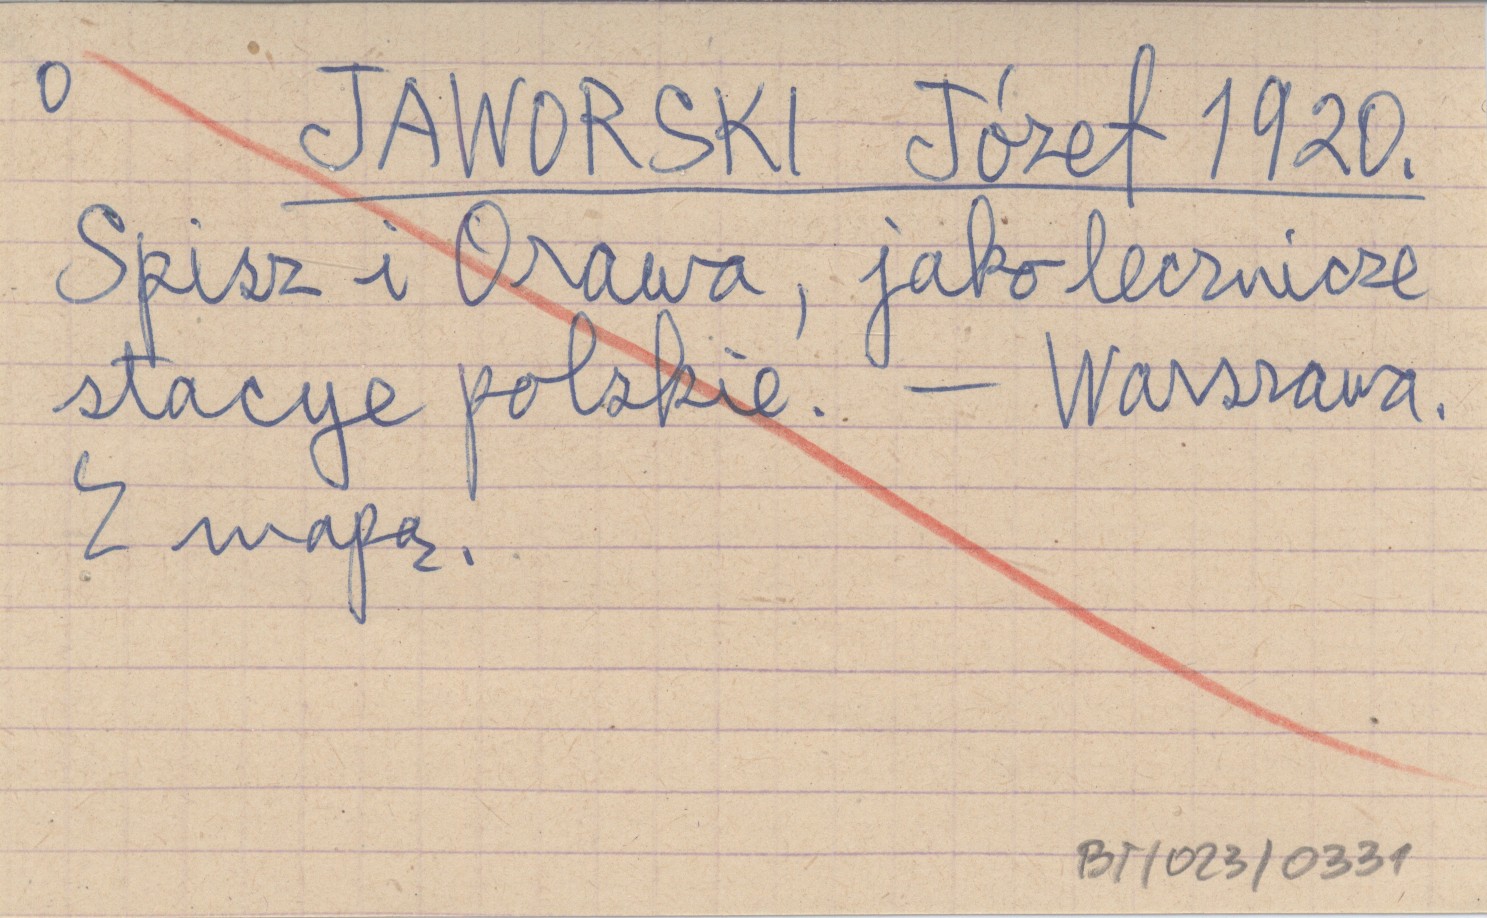 O JAWORSKI Józef 1920.
Spisz i Orawa, jako lecznicze
stacye polskie. — Warszawa.
Z mapą.
BT/023/0331